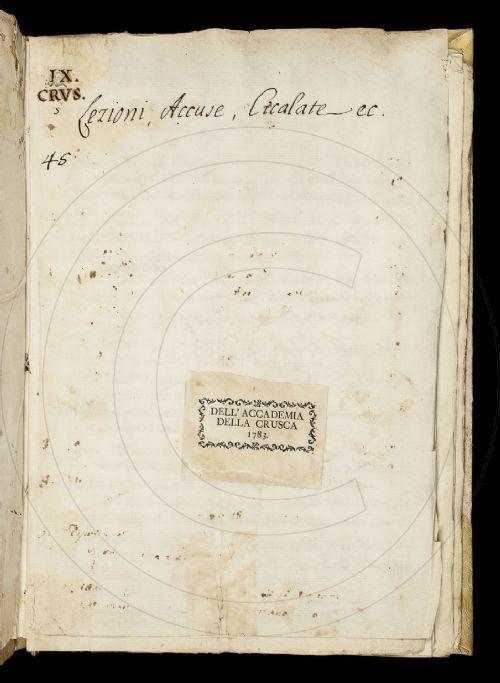 IX.
CRVS.
5
Lezioni, Accuse, Cicalate ec.
45
DELL' ACCADEMIA
DELLA CRUSCA
1783.